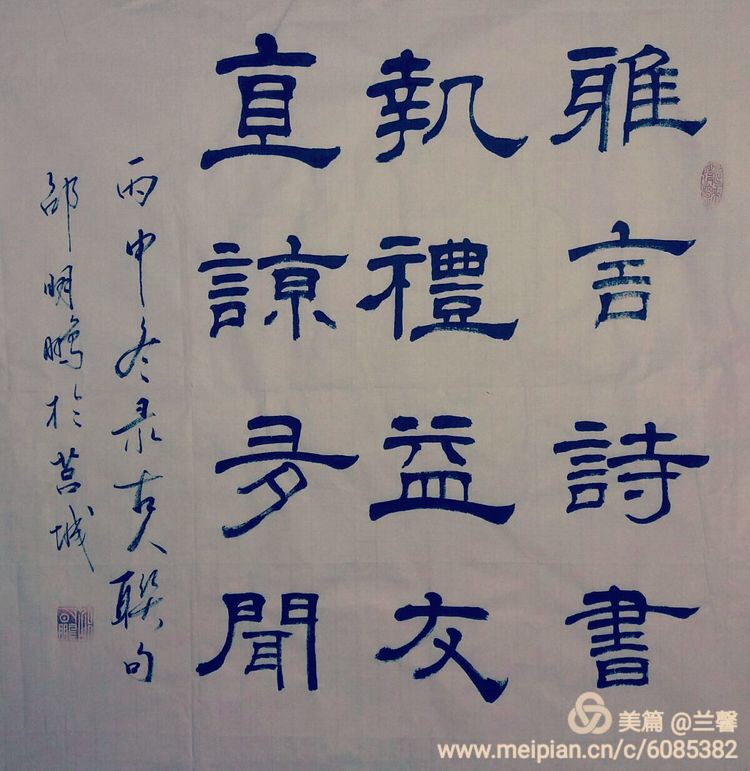 雅言詩書
執禮益友
直諒多聞
丙申冬录古人聯句
邵明鵬於莒城
美篇 @兰馨
www.meipian.cn/c/6085382